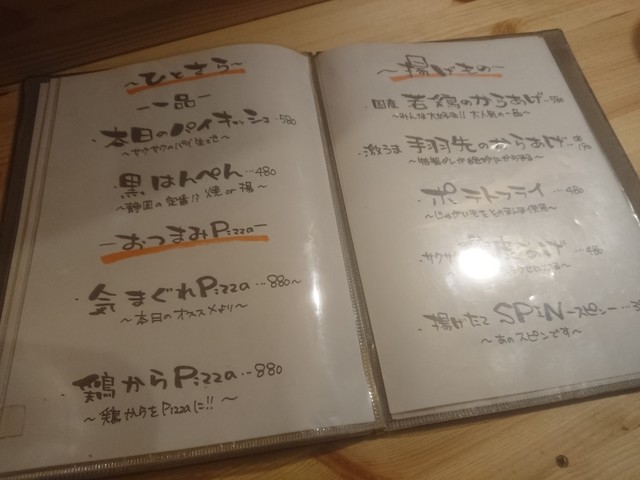 ～ひとさら～
一品
・本日のパイキッシュ…580
～サクサクのパイ生地～
・黒はんぺん…480
～静岡の定番!? 焼 or 揚～
ーおつまみPizzaー
・気まぐれPizza…880～
～本日のオススメより～
・鶏からPizza…880
～鶏からをPizzaに!!～
～揚げもの～
・国産 若鶏のからあげ
～みんな大好き!! 大人気の一品～
・激うま 手羽先のからあげ
・ポテトフライ…480
サクサク あげ…480
・揚げたて SPiN-スピン-
～あのスピンです～